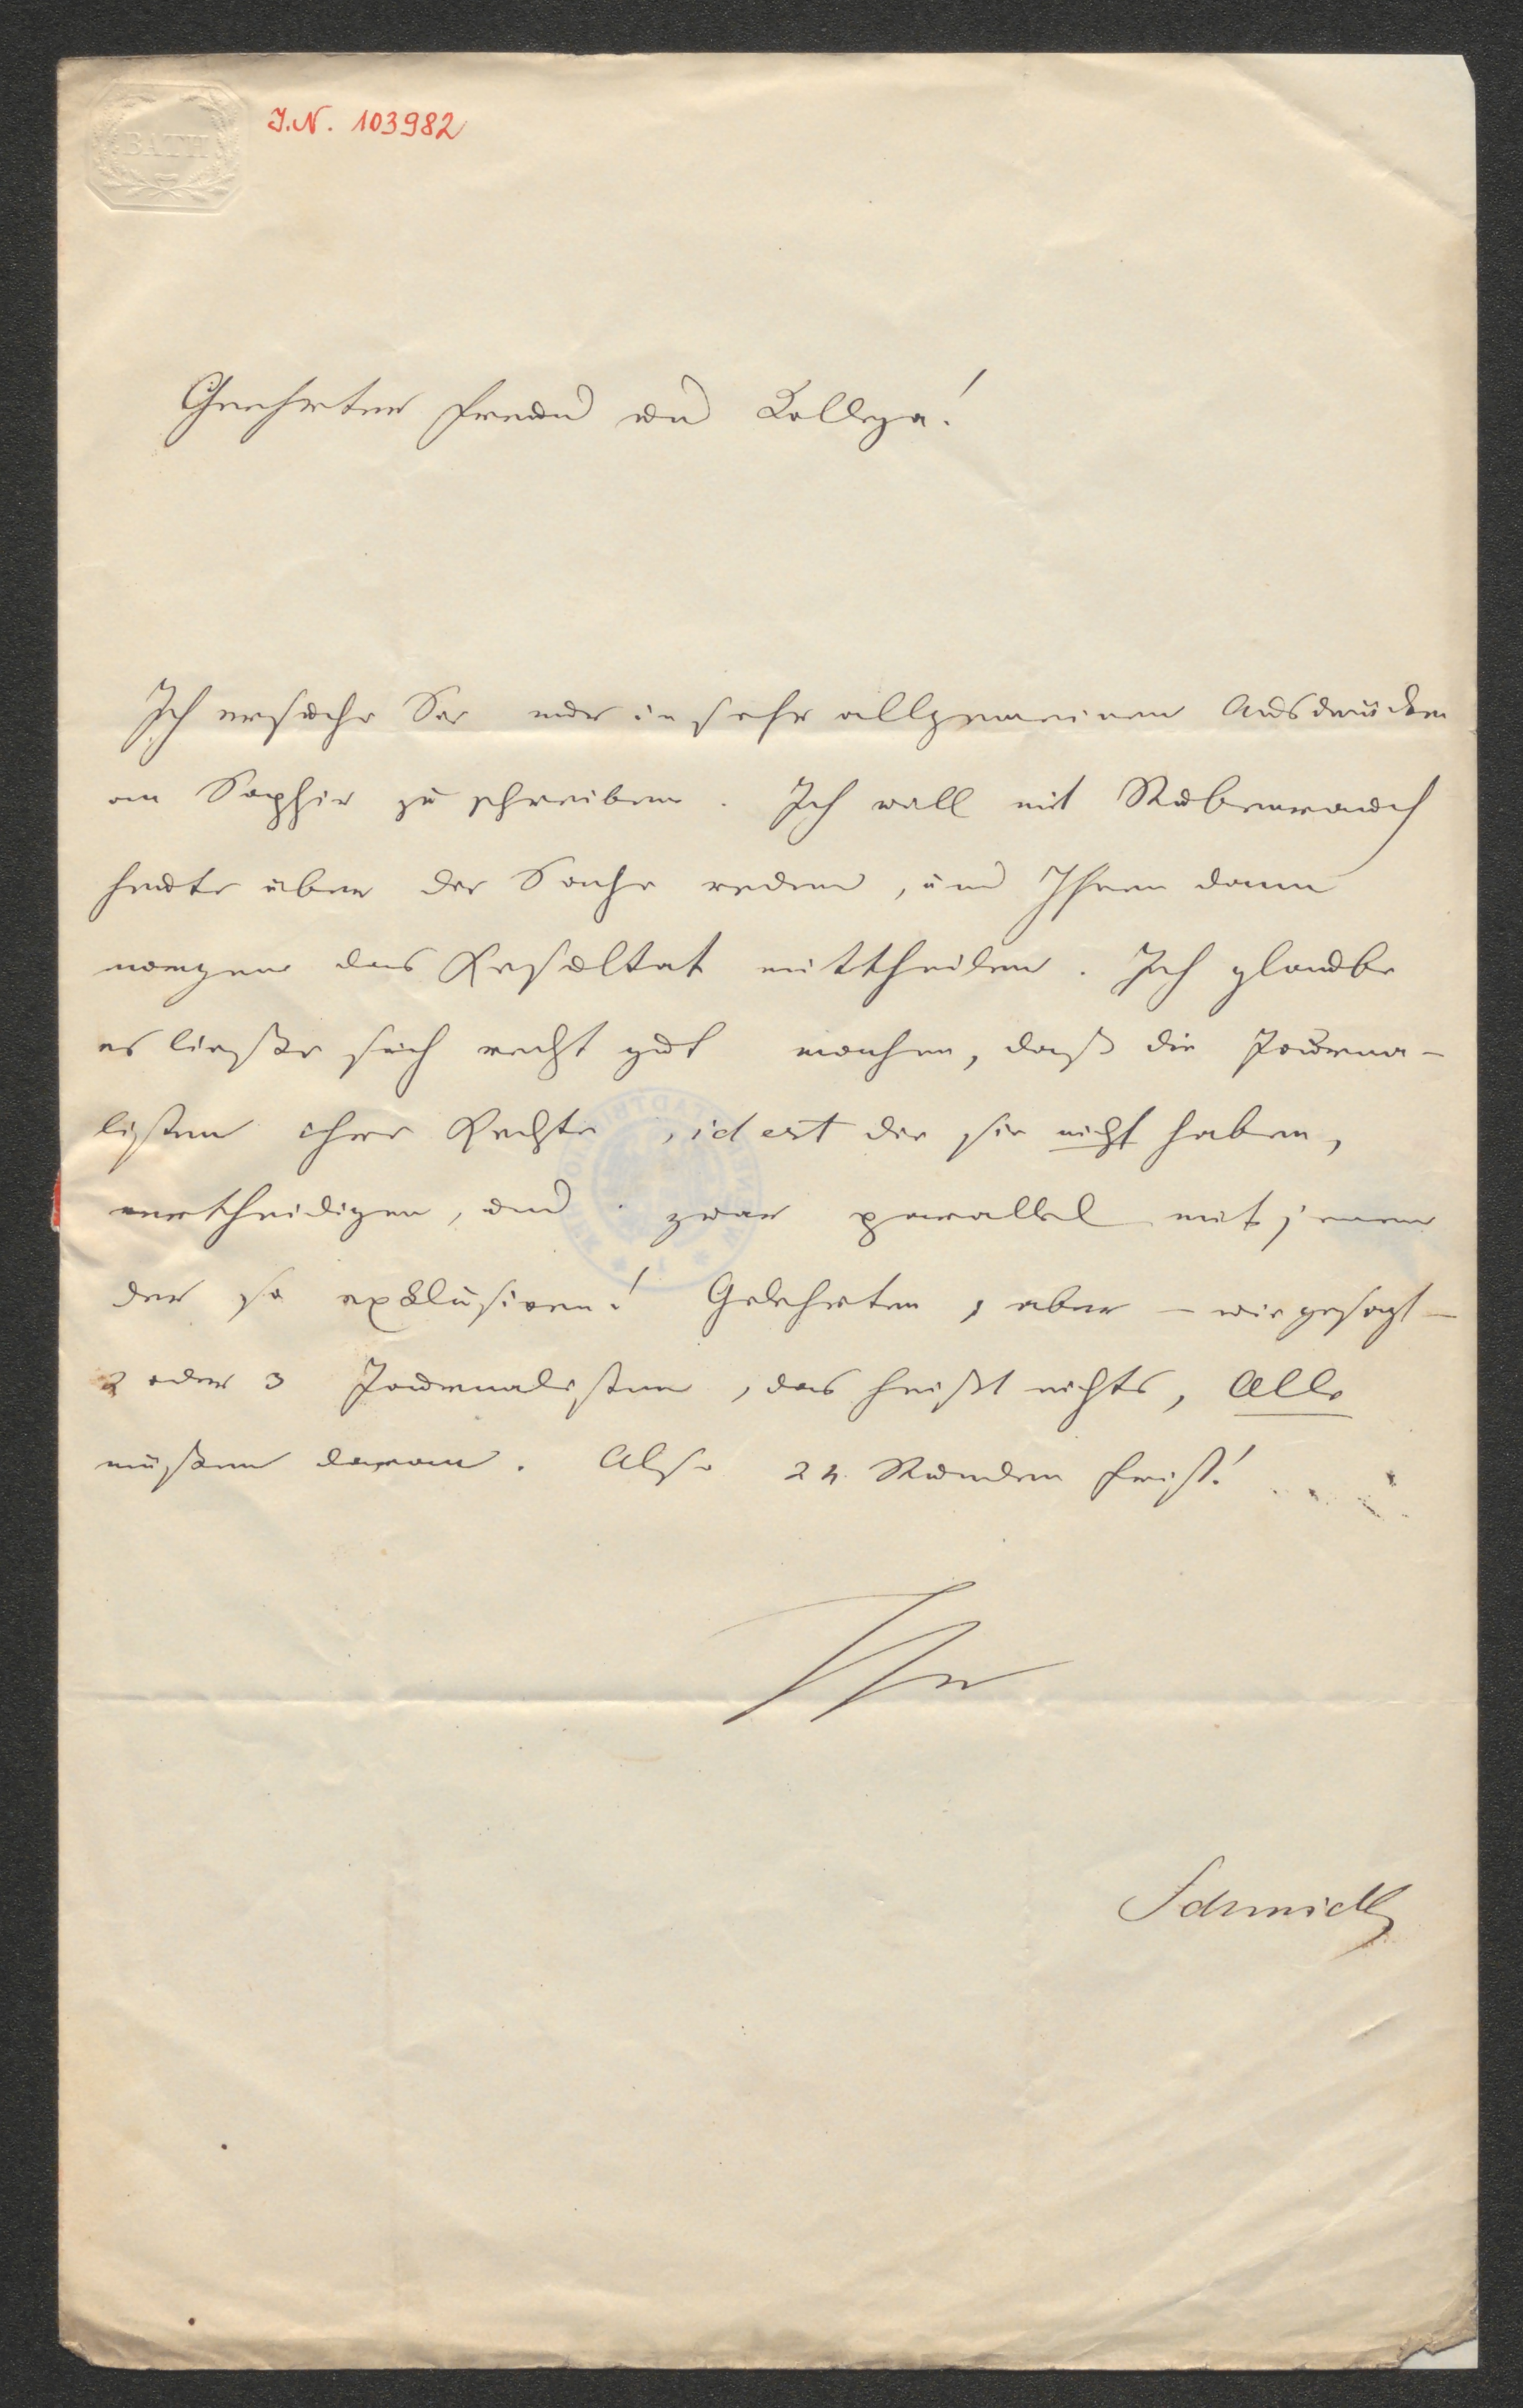 BATH
I.N. 103982
Geehrter Freund und Kollega!
Ich ersuche Sie nur in sehr allgemeinen Ausdrücken
an Saphir zu schreiben. Ich will mit Stubenrauch
heute über die Sache reden, und Ihnen dann
morgen das Resultat mittheilen. Ich glaube
es ließe sich recht gut machen, daß die Journa-
listen ihre Rechte, id est die sie nicht haben,
vertheidigen, und zwar parallel mit jenen
der so exklusiven! Gelehrten, aber – wie gesagt –
2 oder 3 Journalisten, das heißt nichts, Alle
müßen daran. Also 24 Stunden Frist!
Ihr
Schmidl